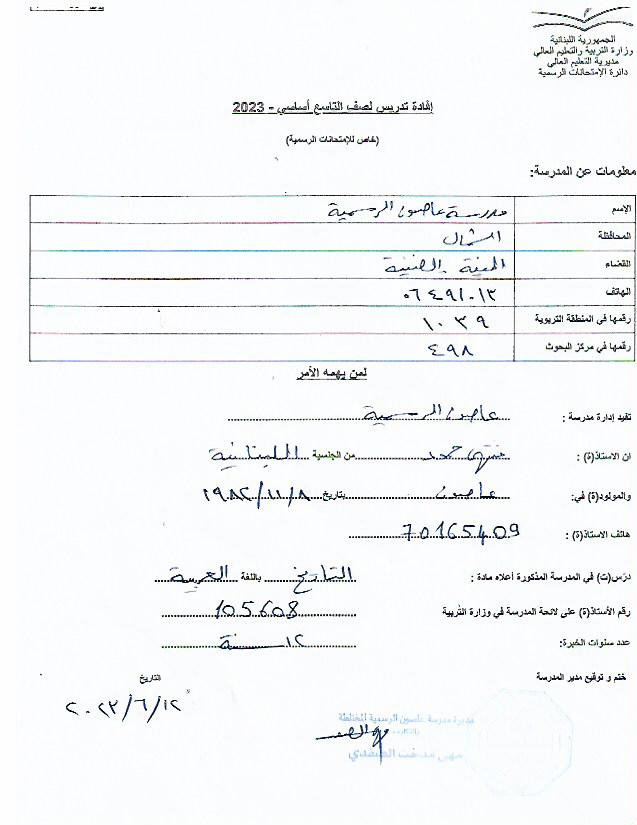 الجمهورية اللبنانية
وزارة التربية والتعليم العالي
مديرية التعليم العالي
دائرة الإمتحانات الرسمية
إفادة تدريس لصف التاسع أساسي - 2023
(خاص للإمتحانات الرسمية)
معلومات عن المدرسة:
الإسم مدرسة عاصون الرسمية
المحافظة الشمال
القضاء المنية الضنية
الهاتف ٠٦٤٩١٠١٣
رقمها في المنطقة التربوية ١٠٣٩
رقمها في مركز البحوث ٤٩٨
لمن يهمه الأمر
تفيد إدارة مدرسة : عاصون الرسمية
ان الاستاذ(ة) : حمد من الجنسية اللبنانية
والمولود(ة) في: عاصون بتاريخ ١٩٨٢/١١/٨
هاتف الاستاذ(ة) : 70165409
درّس(ت) في المدرسة المذكورة أعلاه مادة : التاريخ باللغة العربية
رقم الأستاذ(ة) على لائحة المدرسة في وزارة التربية 105608
عدد سنوات الخبرة: ١٢ سنة
ختم و توقيع مدير المدرسة
التاريخ
٢٠٢٣/٦/١٢
مديرة مدرسة عاصون الرسمية المختلطة
بالتكليف
مهى مدحت الصمدي